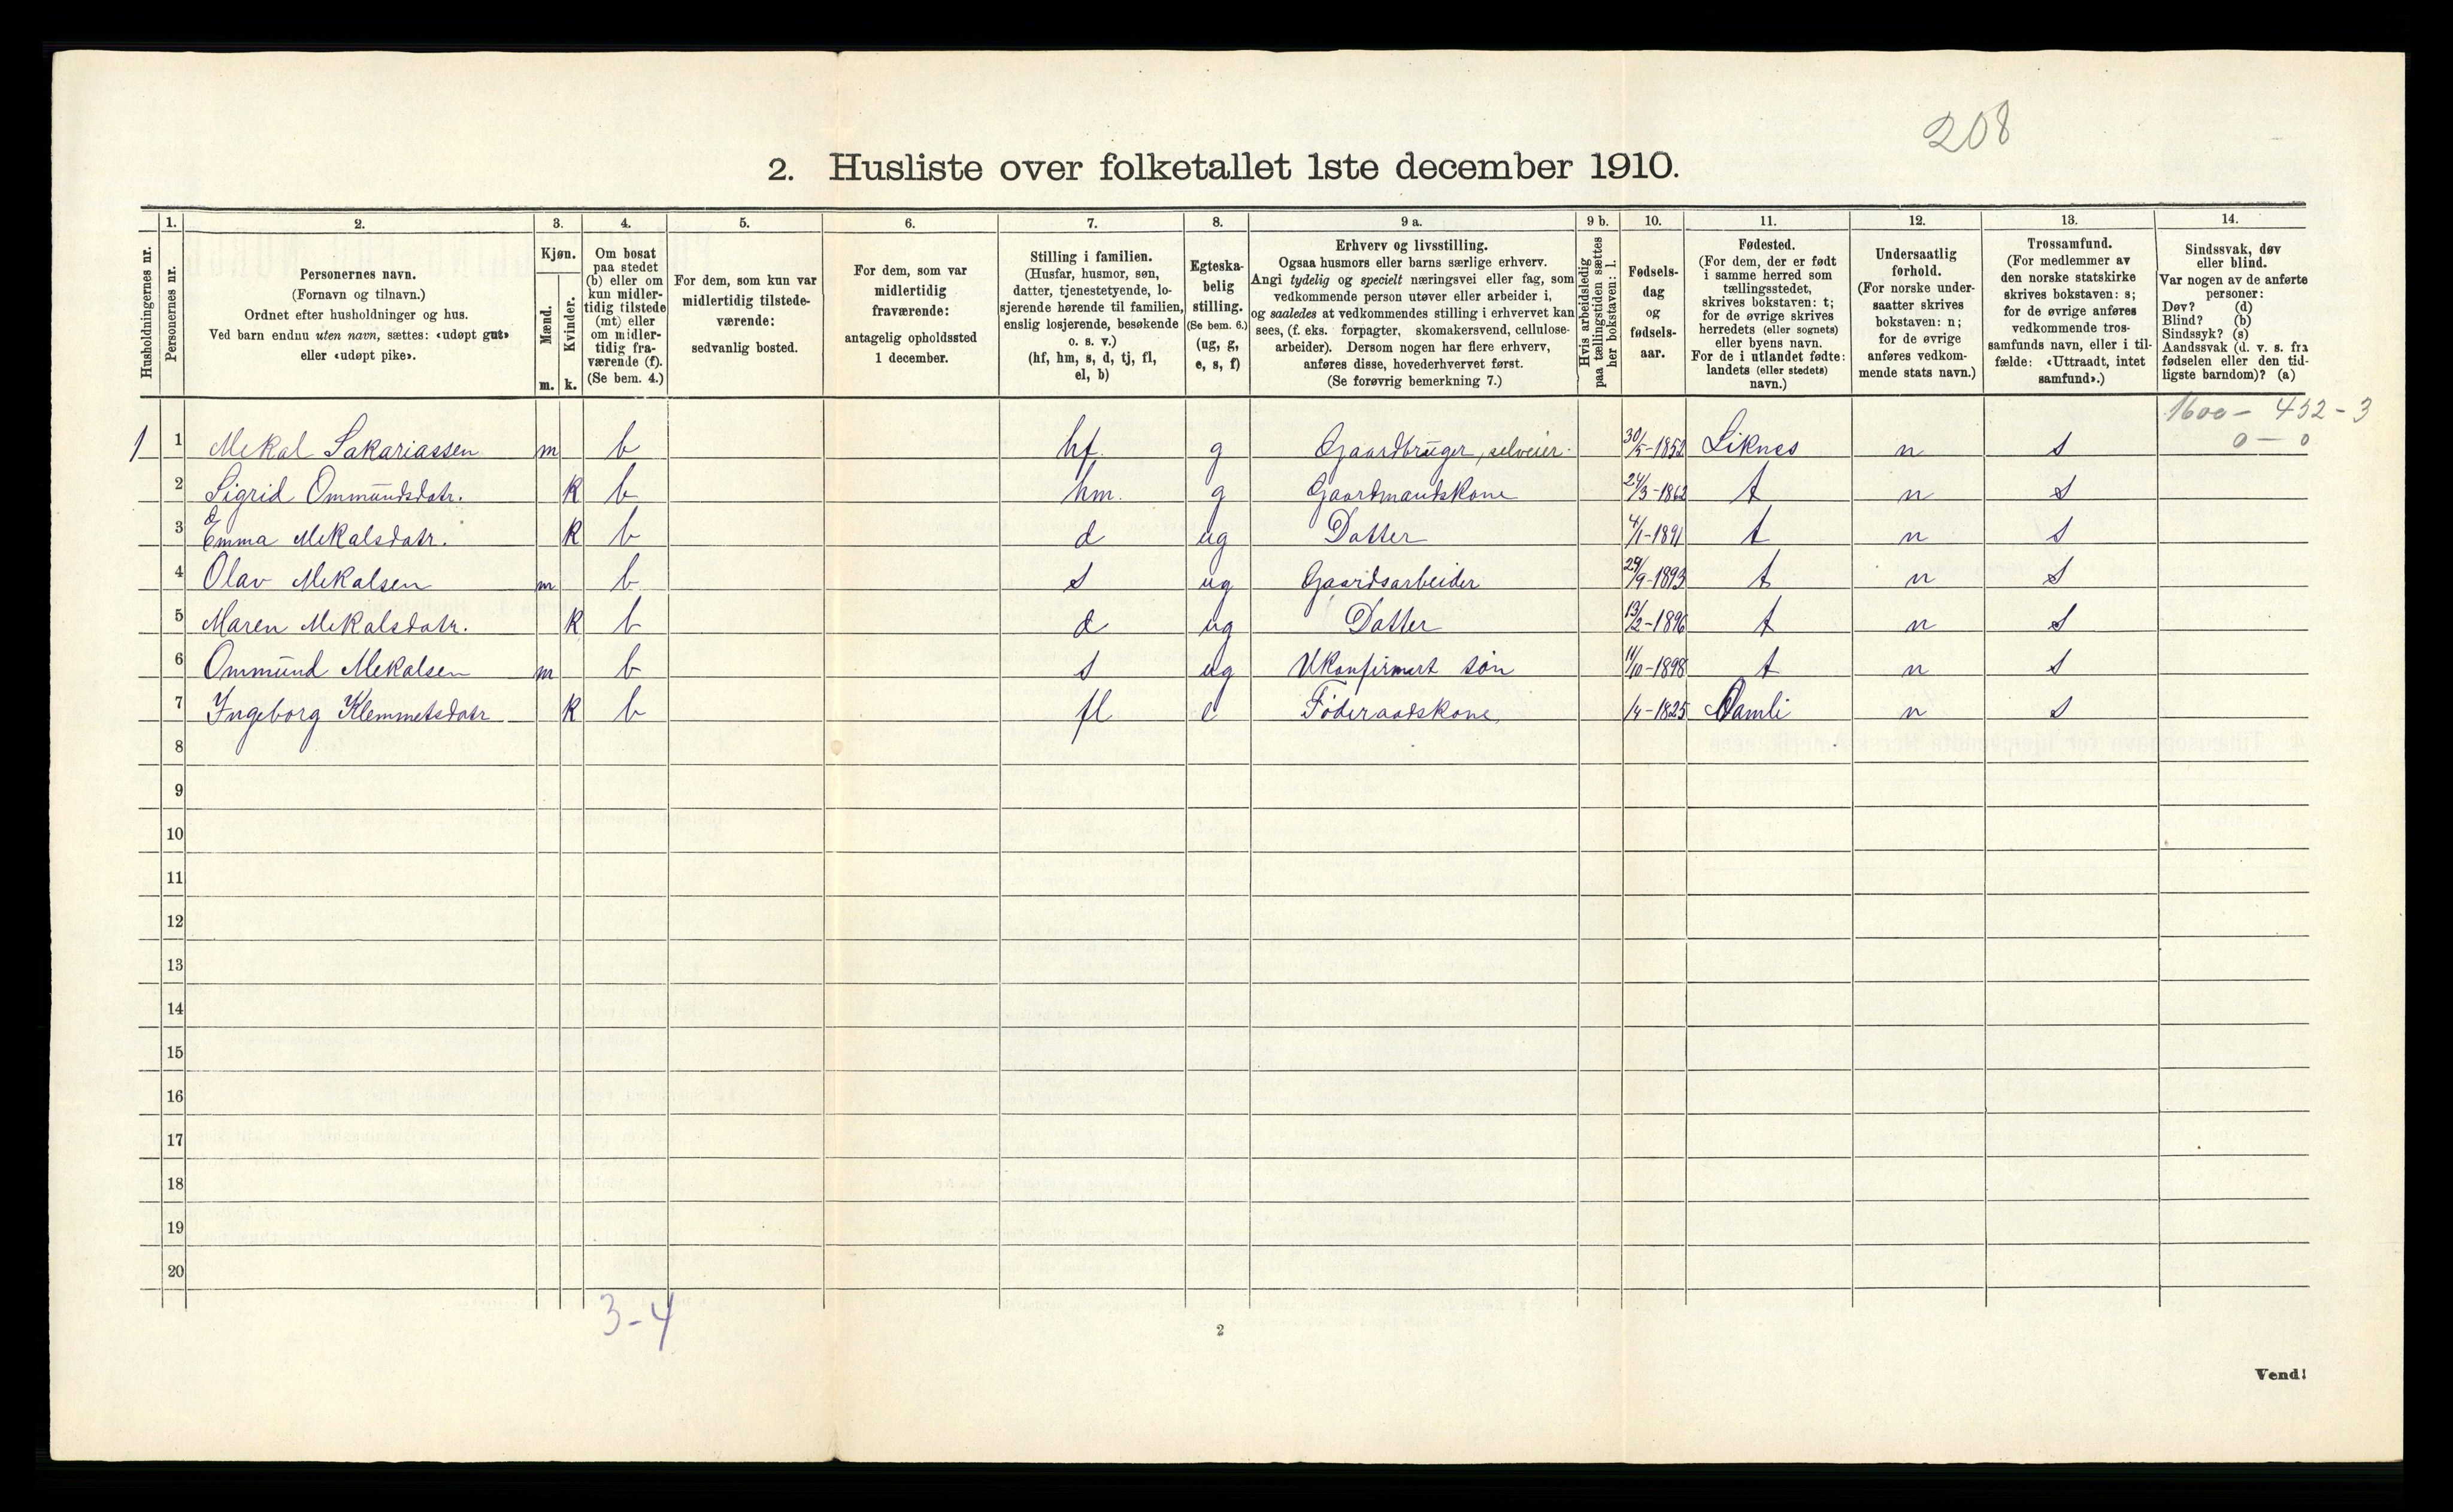 208
2. Husliste over folketallet 1ste december 1910.
Husholdningernes nr.
1.
Personernes nr.
2.
Personernes navn.
(Fornavn og tilnavn.)
Ordnet efter husholdninger og hus.
Ved barn endnu uten navn, sættes: «udøpt gut»
eller «udøpt pike».
3.
Kjøn.
Mænd.
m.
Kvinder.
k.
4.
Om bosat
paa stedet
(b) eller om
kun midler-
tidig tilstede
(mt) eller
om midler-
tidig fra-
værende (f).
(Se bem. 4.)
5.
For dem, som kun var
midlertidig tilstede-
værende:
sedvanlig bosted.
6.
For dem, som var
midlertidig
fraværende:
antagelig opholdssted
1 december.
7.
Stilling i familien.
(Husfar, husmor, søn,
datter, tjenestetyende, lo-
sjerende hørende til familien,
enslig losjerende, besøkende
o. s. v.)
(hf, hm, s, d, tj, fl,
el, b)
8.
Egteska-
belig
stilling.
(Se bem. 6.)
(ug, g,
e, s, f)
9 a.
Erhverv og livsstilling.
Ogsaa husmors eller barns særlige erhverv.
Angi tydelig og specielt næringsvei eller fag, som
vedkommende person utøver eller arbeider i,
og saaledes at vedkommendes stilling i erhvervet kan
sees, (f. eks. forpagter, skomakersvend, cellulose-
arbeider). Dersom nogen har flere erhverv,
anføres disse, hovederhvervet først.
(Se forøvrig bemerkning 7.)
9 b.
Hvis arbeidsledig
paa tællingstiden sættes
her bokstaven: l.
10.
Fødsels-
dag
og
fødsels-
aar.
11.
Fødested.
(For dem, der er født
i samme herred som
tællingsstedet,
skrives bokstaven: t;
for de øvrige skrives
herredets (eller sognets)
eller byens navn.
For de i utlandet fødte:
landets (eller stedets)
navn.)
12.
Undersaatlig
forhold.
(For norske under-
saatter skrives
bokstaven: n;
for de øvrige
anføres vedkom-
mende stats navn.)
13.
Trossamfund.
(For medlemmer av
den norske statskirke
skrives bokstaven: s;
for de øvrige anføres
vedkommende tros-
samfunds navn, eller i til-
fælde: «Uttraadt, intet
samfund».)
14.
Sindssvak, døv
eller blind.
Var nogen av de anførte
personer:
Døv? (d)
Blind? (b)
Sindssyk? (s)
Aandssvak (d. v. s. fra
fødselen eller den tid-
ligste barndom)? (a)
1600 - 432 - 3
0 - 0
1 1 Mekal Sakariassen m b hf g Gaardbruger, selveier 30/5-1852 Liknes n s
2 Sigrid Ommundsdatr. k b hm. g Gaardmandskone 24/3-1862 t n s
3 Emma Mekalsdatr. k b d ug Datter 4/1-1891 t n s
4 Olav Mekalsen m b s ug Gaardsarbeider 29/9-1893 t n s
5 Maren Mekalsdatr. k b d ug Datter 13/2-1896 t n s
6 Ommund Mekalsen m b s ug Ukonfirmert søn 11/10-1898 t n s
7 Ingeborg Klemmetsdatr k b fl e Føderaadskone /4-1825 Aamli n s
8
9
10
11
12
13
14
15
16
17
18
19
20
3-4
2
Vend!